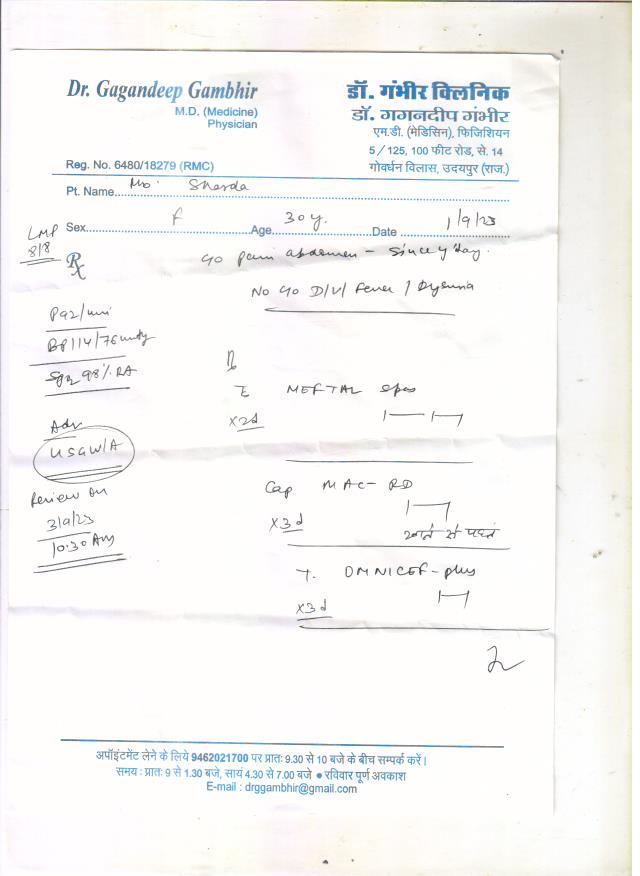 Dr. Gagandeep Gambhir
M.D. (Medicine)
Physician
Reg. No. 6480/18279 (RMC)
डॉ. गंभीर क्लिनिक
डॉ. गगनदीप गंभीर
एम.डी. (मेडिसिन), फिजिशियन
5 / 125, 100 फीट रोड, से. 14
गोवर्धन विलास, उदयपुर (राज.)
Pt. Name Sharda
Sex F Age 30y. Date 1/9/23
LMP
8/8
Rx
C/o pain abdomen - since
No C/o D/V/ Fever /
P92/min
BP114/76
98% RA
Adv
USG W/A
Review on
3/9/23
10:30 AM
MEFTAL spas
x2d
Cap MAC-RD
x3d
खाने से पहले
T. OMNICEF-plus
x3d
अपॉइंटमेंट लेने के लिये 9462021700 पर प्रातः 9.30 से 10 बजे के बीच सम्पर्क करें।
समय : प्रातः 9 से 1.30 बजे, सायं 4.30 से 7.00 बजे ● रविवार पूर्ण अवकाश
E-mail : drggambhir@gmail.com